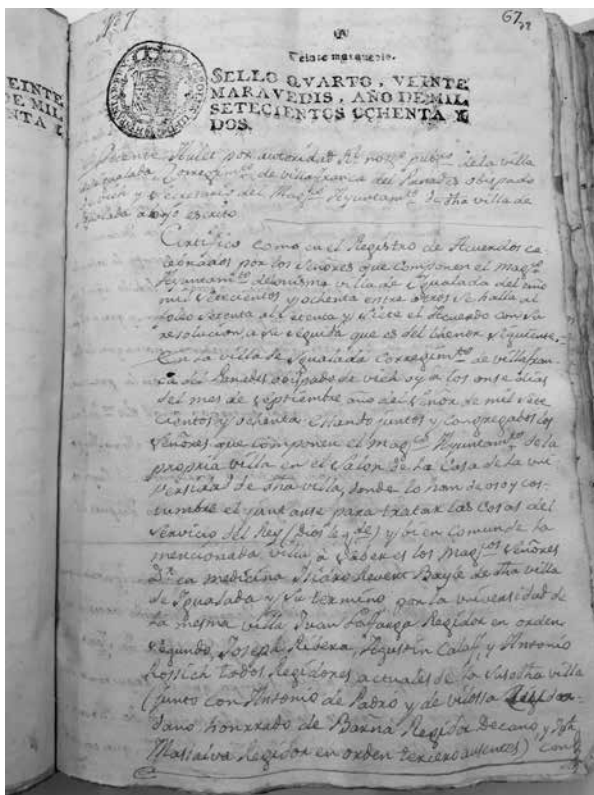 Nº 7
67
Veinte maravedis.
SELLO QVARTO, VEINTE
MARAVEDIS, AÑO DE MIL
SETECIENTOS OCHENTA Y
DOS.
EINTE
DE MIL
NTA Y
Vicente por autoridad Rl. noto. pubco. de la villa
de Igualada Corregimto. de villafranca del Panadés obispado
de vich y Secretario del Magco. Ayuntamto. de dha villa de
Igualada avajo escrito
Certifico como en el Registro de Acuerdos ce-
lebrados por los Señores que componen el Magco.
Ayuntamto. de la misma villa de Igualada del año
mil setecientos y ochenta entre otros se halla al
folio setenta al setenta y siete el Acuerdo con su
resolucion, a su seguida que es del thenor siguiente.
En la villa de Igualada Corregimto. de villafran-
ca del Panedés obispado de vich oy a los onse dias
del mes de septiembre año del señor de mil sete-
cientos y ochenta. Estando juntos y congregados los
Señores que componen el Magco. Ayuntamto. de la
propria villa en el Salon de la Casa de la uni-
versidad de dha villa, donde lo han de oso y cos-
tumbre el juntarse para tratar las Cosas del
servicio del Rey (Dios le gde) y bien Comun de la
mencionada villa à saber es los Magcos Señores
Dr. en medicina Isidro Revert Bayle de dha villa
de Igualada y su termino por la universidad de
la mesma villa Juan Lafarga Regidor en orden
segundo, Joseph Ribera, Agustin Calaff, y Antonio
Rossich todos Regidores actuales de la Susodha villa
(junto con Antonio de Padró y de vilossa Ciu-
dano honrrado de Barna Regidor Decano, y
Massalva Regidor en orden tercero ausentes) Con